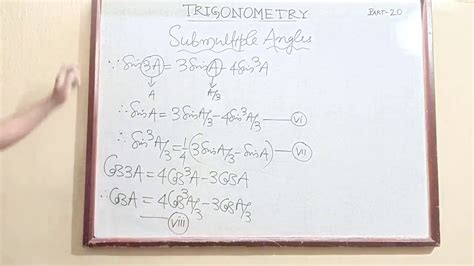 TRIGONOMETRY
PART-20
Submultiple Angles
∵ Sin3A = 3SinA - 4Sin³A
A A/3
∴ SinA = 3SinA/3 - 4Sin³A/3 — VI
∴ Sin³A/3 = 1/4 (3SinA/3 - SinA) — VII
Cos3A = 4Cos³A - 3CosA
∴ CosA = 4Cos³A/3 - 3CosA/3
— VIII